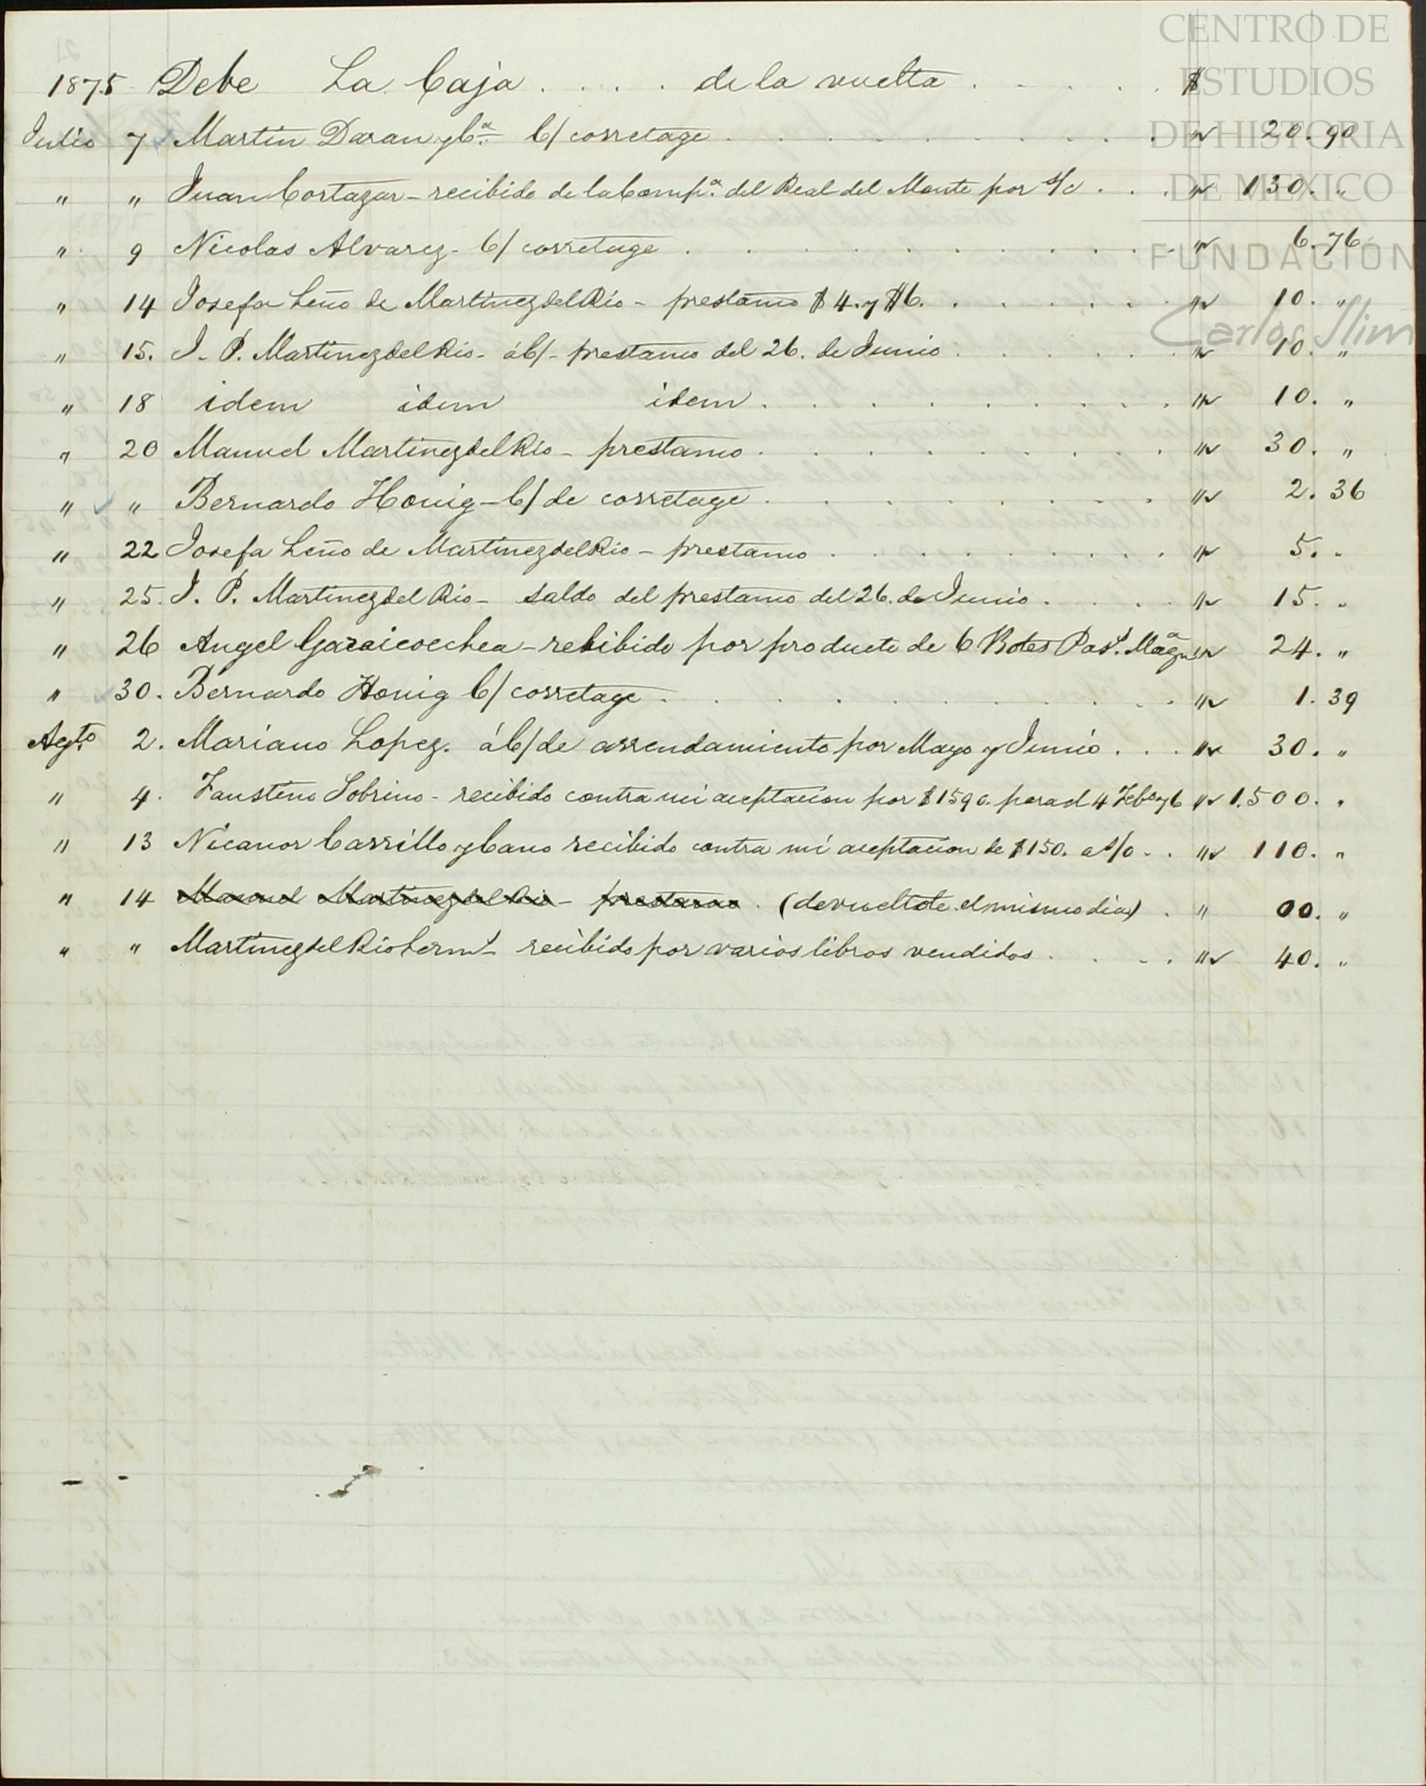 CENTRO DE
ESTUDIOS
DE HISTORIA
DE MEXICO
FUNDACIÓN
Carlos Slim
1875 Debe La Caja . . . . de la vuelta . . . . . $
Julio 7 Martin Daran y Cª C/ corretage . . . . . . . . . " 20. 90
" " Juan Cortazar - recibido de la Compª. del Real del Monte por s/c . . . " 130. "
" 9 Nicolas Alvarez - C/ corretage . . . . . . . . . . " 6. 76
" 14 Josefa Leño de Martinez del Rio - prestamo $4. y $6. . . . . . . " 10. "
" 15. J. P. Martinez del Rio - á C/ - prestamo del 26. de Junio . . . . . . " 10. "
" 18 idem idem idem . . . . . . . . . " 10. "
" 20 Manuel Martinez del Rio - prestamo . . . . . . . . . " 30. "
" " Bernardo Honig - C/ de corretage . . . . . . . . . " 2. 36
" 22 Josefa Leño de Martinez del Rio - prestamo . . . . . . . . . " 5. "
" 25. J. P. Martinez del Rio - saldo del prestamo del 26. de Junio . . . . . " 15. "
" 26 Angel Garaicoechea - recibido por producto de 6 Botes Past. Magª " 24. "
" 30. Bernardo Honig C/ corretage . . . . . . . . . . " 1. 39
Agto 2. Mariano Lopez. á C/ de arrendamiento por Mayo y Junio . . . " 30. "
" 4. Faustino Sobrino - recibido contra mi aceptacion por $1590. para el 4 Febo 76 " 1.500. "
" 13 Nicanor Carrillo y Cano recibido contra mi aceptacion de $150. a . . " 110. "
" 14 Manuel Martinez del Rio - prestamo . (devueltote el mismo dia) . " 00. "
" " Martinez del Rio herms - recibido por varios libros vendidos . . . . " 40. "